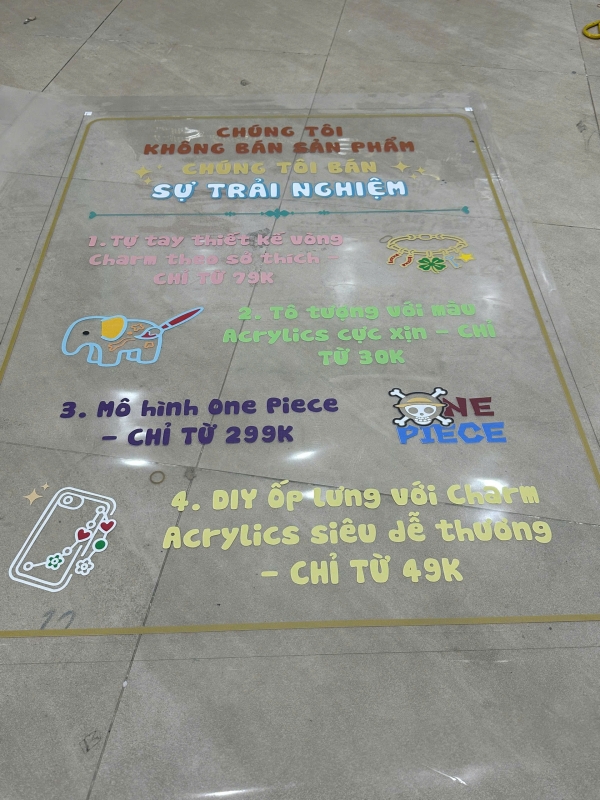 CHÚNG TÔI
KHÔNG BÁN SẢN PHẨM
CHÚNG TÔI BÁN
SỰ TRẢI NGHIỆM
1. Tự tay thiết kế vòng
Charm theo sở thích –
CHỈ TỪ 79K
2. Tô tượng với màu
Acrylics cực xịn – CHỈ
TỪ 30K
3. Mô hình One Piece
– CHỈ TỪ 299K
ONE
PIECE
4. DIY ốp lưng với Charm
Acrylics siêu dễ thương
– CHỈ TỪ 49K